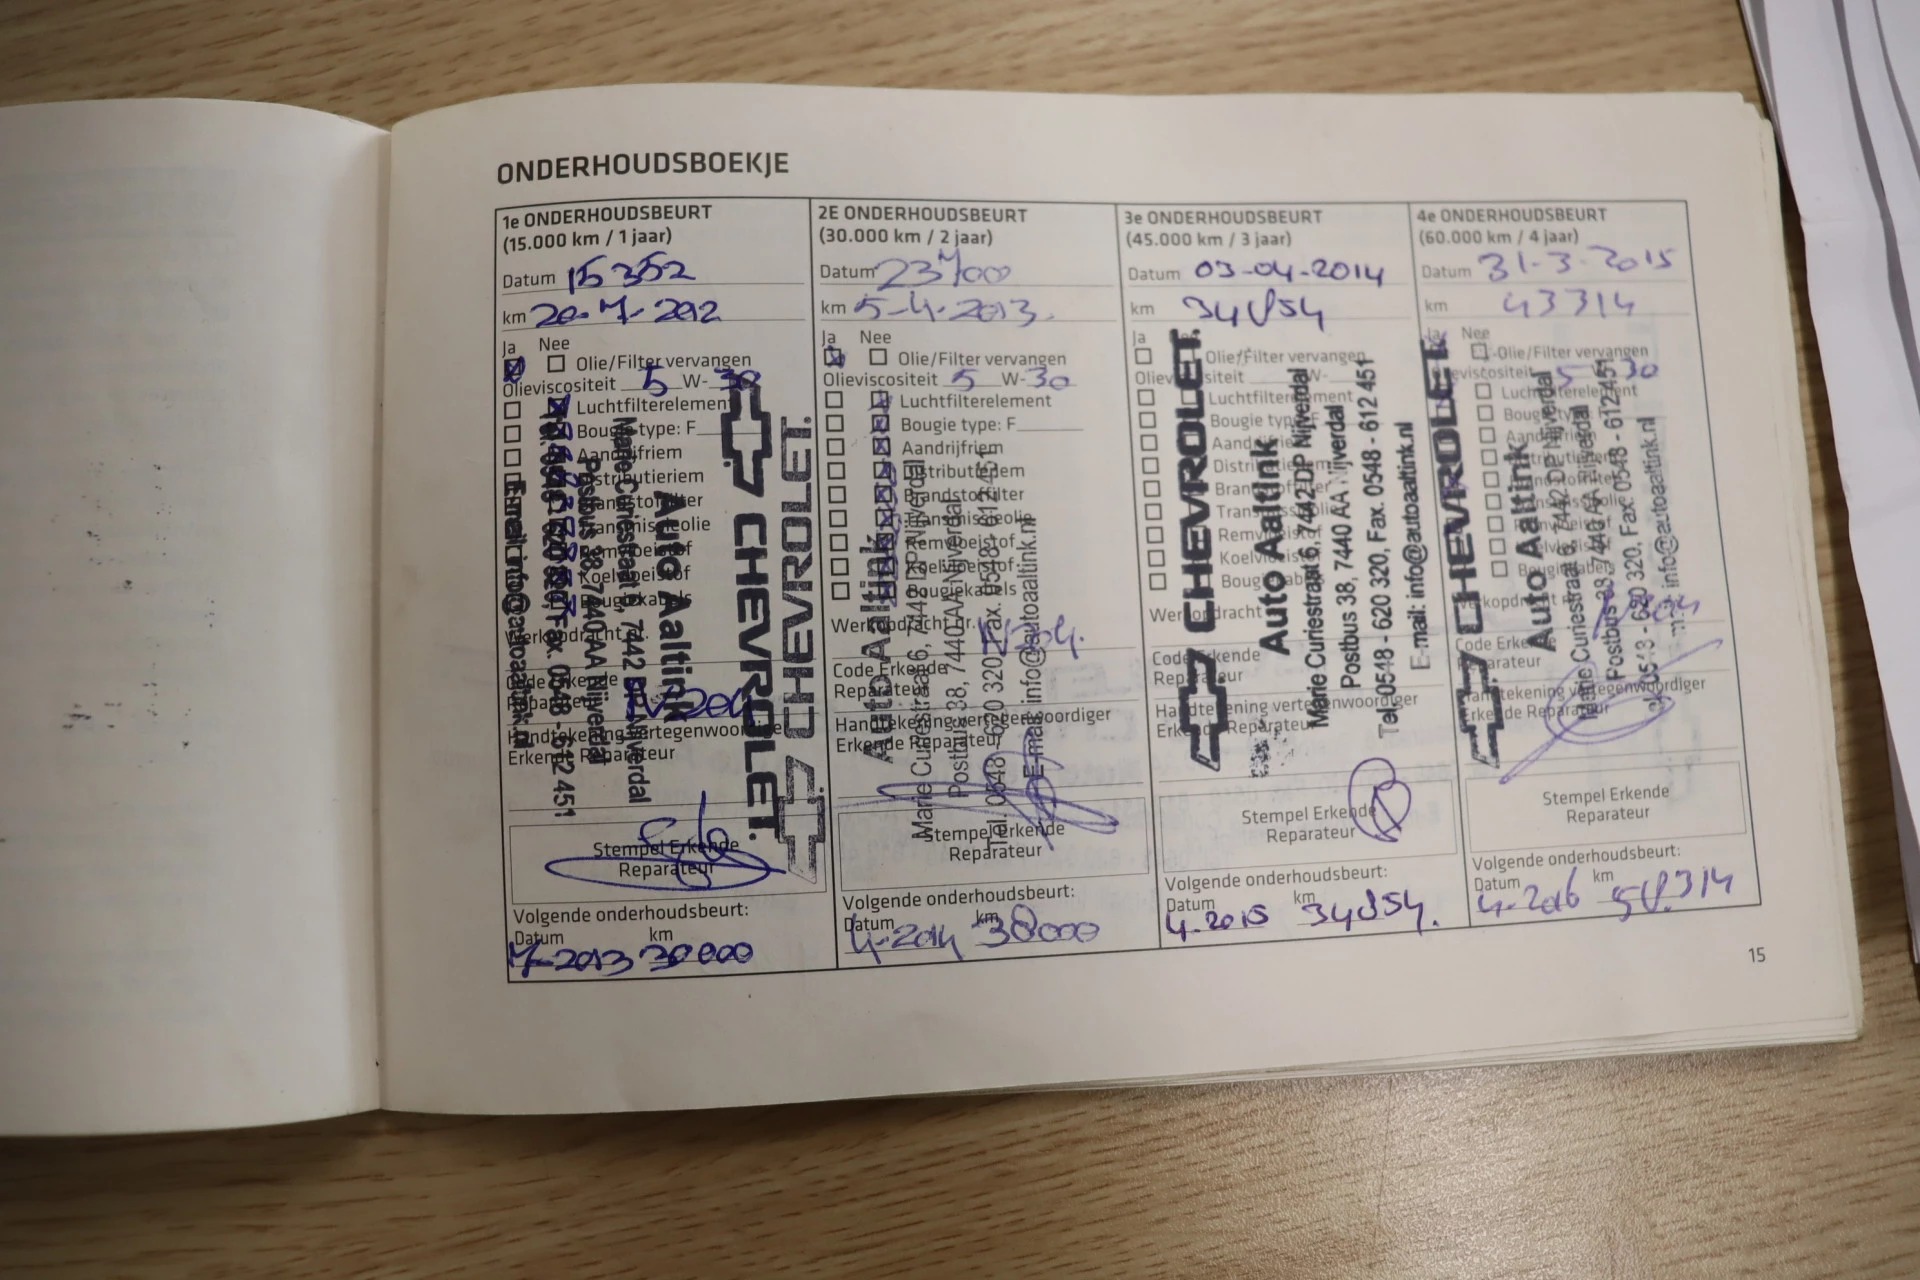 ONDERHOUDSBOEKJE
1e ONDERHOUDSBEURT
(15.000 km / 1 jaar)
Datum 15352
km 20-7-2012
Ja Nee
Olie/Filter vervangen
Olieviscositeit 5 W-30
Luchtfilterelement
Bougie type: F
Aandrijfriem
Distributieriem
Brandstoffilter
Transmissieolie
Remvloeistof
Koelvloeistof
Bougiekabels
Werkopdracht nr.
Code Erkende
Reparateur
Handtekening vertegenwoordiger
Erkende Reparateur
Stempel Erkende
Reparateur
Volgende onderhoudsbeurt:
Datum km
7-2013 30000
CHEVROLET
CHEVROLET
Auto Aaltink
Marie Curiestraat 6, 7442 DP Nijverdal
Postbus 38, 7440 AA Nijverdal
Tel. 0548 - 620 320, Fax. 0548 - 612 451
E-mail: info@autoaaltink.nl
2E ONDERHOUDSBEURT
(30.000 km / 2 jaar)
Datum 23700
km 5-4-2013.
Ja Nee
Olie/Filter vervangen
Olieviscositeit 5 W-30
Luchtfilterelement
Bougie type: F
Aandrijfriem
Distributieriem
Brandstoffilter
Transmissieolie
Remvloeistof
Koelvloeistof
Bougiekabels
Werkopdracht nr.
Code Erkende
Reparateur
Handtekening vertegenwoordiger
Erkende Reparateur
Stempel Erkende
Reparateur
Volgende onderhoudsbeurt:
Datum km
4-2014 38000
Auto Aaltink
Marie Curiestraat 6, 7442 DP Nijverdal
Postbus 38, 7440 AA Nijverdal
Tel. 0548 - 620 320, Fax. 0548 - 612 451
E-mail: info@autoaaltink.nl
3e ONDERHOUDSBEURT
(45.000 km / 3 jaar)
Datum 03-04-2014
km
Ja
Olie/Filter vervangen
Olieviscositeit W-
Luchtfilterelement
Bougie type: F
Aandrijfriem
Distributieriem
Brandstoffilter
Transmissieolie
Remvloeistof
Koelvloeistof
Bougiekabels
Werkopdracht
Code Erkende
Reparateur
Handtekening vertegenwoordiger
Erkende Reparateur
Stempel Erkende
Reparateur
Volgende onderhoudsbeurt:
Datum km
4-2015
CHEVROLET
Auto Aaltink
Marie Curiestraat 6, 7442 DP Nijverdal
Postbus 38, 7440 AA Nijverdal
Tel. 0548 - 620 320, Fax. 0548 - 612 451
E-mail: info@autoaaltink.nl
4e ONDERHOUDSBEURT
(60.000 km / 4 jaar)
Datum 31-3-2015
km 43314
Ja Nee
Olie/Filter vervangen
Olieviscositeit 5 30
Luchtfilterelement
Bougie
Aandrijfriem
Distributieriem
Brandstoffilter
Transmissieolie
Remvloeistof
Koelvloeistof
Bougiekabels
Werkopdracht
Code Erkende
Reparateur
Handtekening vertegenwoordiger
Erkende Reparateur
Stempel Erkende
Reparateur
Volgende onderhoudsbeurt:
Datum km
4-2016
CHEVROLET
Auto Aaltink
Marie Curiestraat 6, 7442 DP Nijverdal
Postbus 38, 7440 AA Nijverdal
0548 - 620 320, Fax. 0548 - 612 451
info@autoaaltink.nl
15